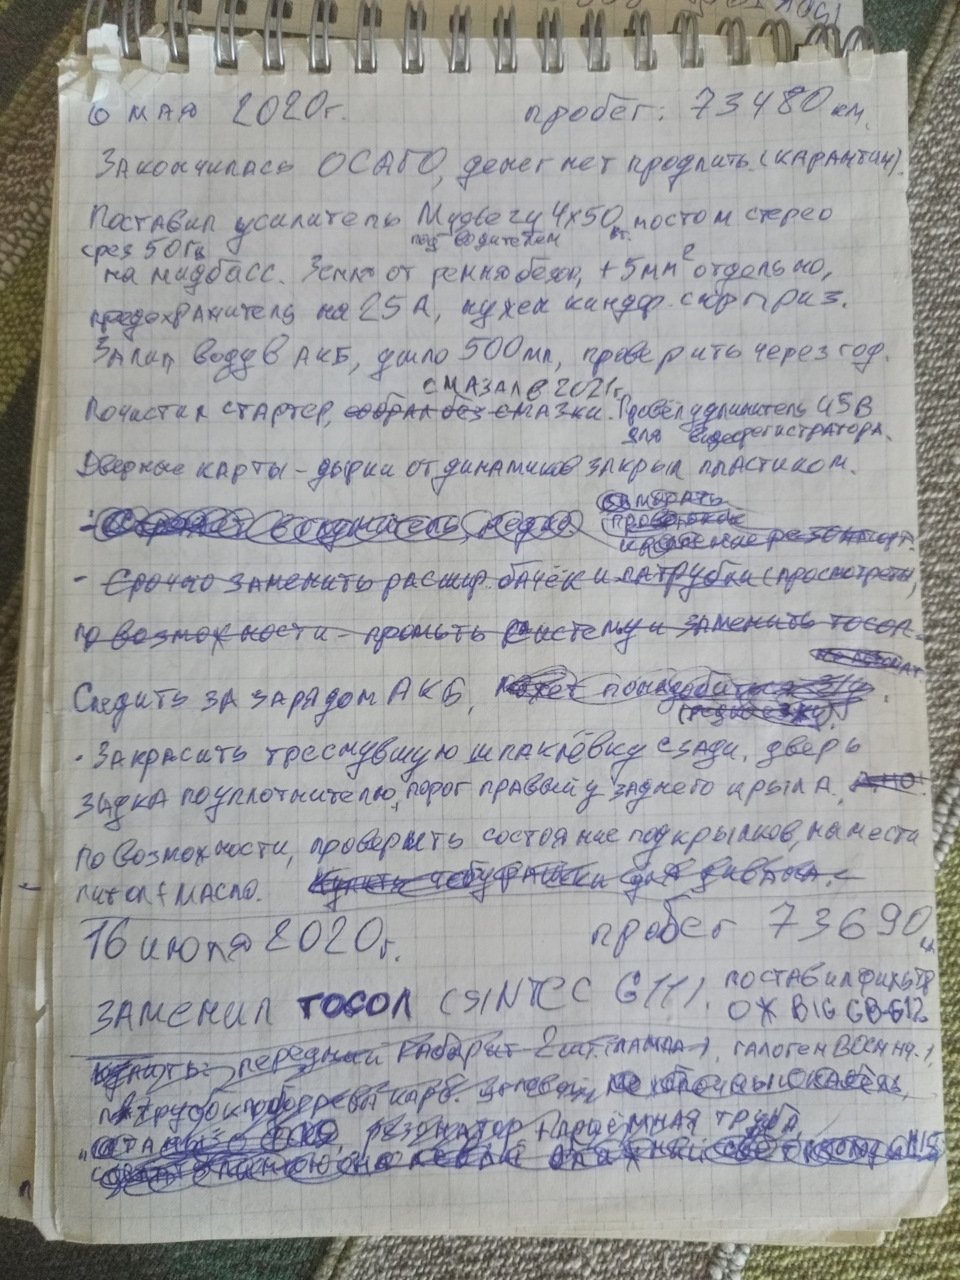 6 мая 2020г. пробег: 73480 км.
Закончилась ОСАГО, денег нет продлить (карантин).
Поставил усилитель 4x50 вт. мостом стерео
под водителем
срез 50Гц
на мидбасс. Земля от ремня безоп, +5мм² отдельно,
предохранитель на 25А, нужен киндер сюрприз.
Залил воду в АКБ, ушло 500мл, проверить через год.
смазал в 2021г.
Почистил стартер, собрал без смазки. Провёл удлинитель USB
для видеорегистратора.
Дверные карты - дырки от динамиков закрыл пластиком.
крепление резонатора.
- Срочно заменить расшир. бачёк и патрубки (просмотреть,
по возможности - промыть систему и заменить тосол.
Следить за зарядом АКБ, может понадобиться
- Закрасить треснувшую шпаклёвку сзади, дверь
задка по уплотнителю, порог правый у заднего крыла.
по возможности, проверить состояние подкрылков, нанести
литол + масло. Купить для
16 июля 2020г. пробег 73690 км
Заменил тосол (SINTEC G11). поставил фильтр
ОЖ BIG GB-G12
Купить: передний габарит 2шт. (лампа), галоген
патрубок подогрева карб.
резонатор + приёмная труба,